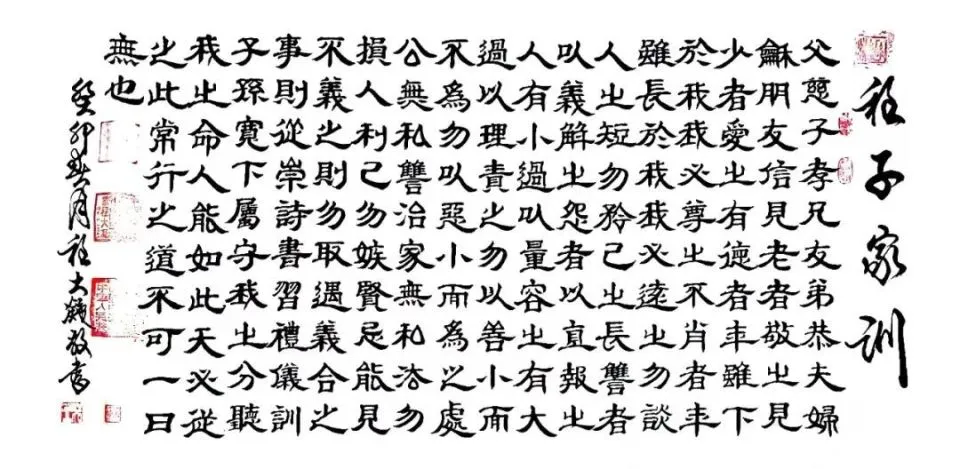 程子家训
父慈子孝兄友弟恭夫婦
龢朋友信見老者敬之見
少者愛之有德者年雖下
於我我必尊之不肖者年
雖長於我我必遠之勿談
人之短勿矜己之長讐者
以義解之怨者以直報之
人有小過以量容之有大
過以理責之勿以善小而
不為勿以惡小而為之處
公無私讐治家無私法勿
損人利己勿嫉賢忌能見
不義之則勿取遇義合之
事則從崇詩書習禮儀訓
子孫寬下屬守我之分聽
我之命人能如此天必從
之此常行之道不可一日
無也
癸卯春月程大敬書